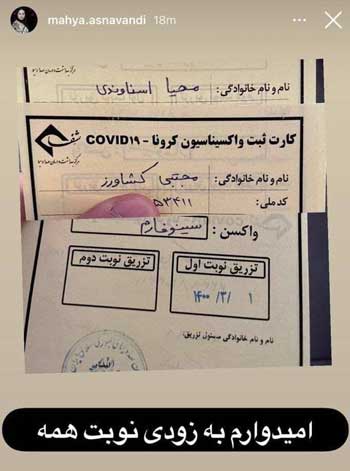 mahya.asnavandi 18m
نام و نام خانوادگی: محیا اسناوندی
کارت ثبت واکسیناسیون کرونا - COVID۱۹
شفا
نام و نام خانوادگی: مجتبی کشاورز
کد ملی: ۵۳۴۱۱
واکسن: سینوفارم
تزریق نوبت اول
تزریق نوبت دوم
۱۴۰۰/۳/۱
نام و نام خانوادگی مسئول تزریق:
امیدوارم به زودی نوبت همه